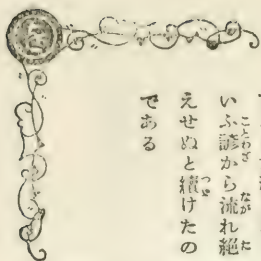 いふ諺から流れ絶
えせぬと續けたの
である